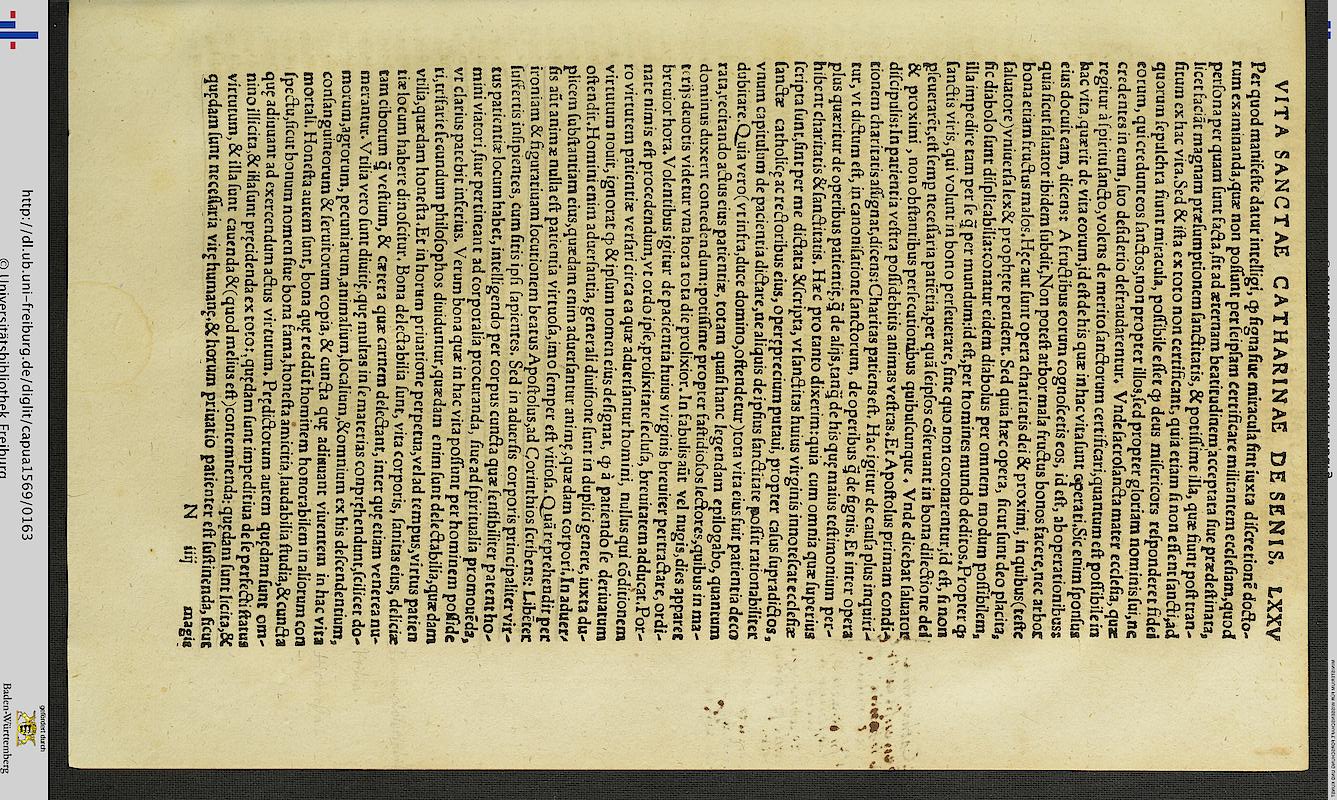 VITA SANCTAE CATHARINAE DE SENIS. LXXV
Per quod manifeste datur intelligi, ꝙ signa siue miracula sint iuxta discretionē docto-
rum examinanda, quæ non possunt per seipsam certificare militantem ecclesiam, quod
persona per quam sunt facta, sit ad æternam beatitudinem acceptata siue prædestinata,
licet faciāt magnam præsumptionem sanctitatis, & potissime illa, quæ fiunt post tran-
situm ex hac vita. Sed & ista ex toto non certificant, quia etiam si non essent sancti, ad
quorum sepulchra fiunt miracula, possibile esset ꝙ deus misericors responderet fidei
eorum, qui credunt eos sanctos, non propter illos, sed propter gloriam nominis sui, ne
credentes in eum, suo desiderio defraudarentur. Vnde sacrosancta mater ecclesia, quæ
regitur à spiritu sancto, volens de merito sanctorum certificari, quantum est possibile in
hac vita, quærit de vita eorum, id est de his quæ in hac vita sunt operati. Sic enim sponsus
eius docuit eam, dicens: A fructibus eorum cognoscetis eos, id est, ab operationibus:
quia sicut saluator ibidem subdit, Non potest arbor mala fructus bonos facere, nec arbor
bona etiam fructus malos. Hęc aut sunt opera charitatis dei & proximi, in quibus (teste
saluatore) vniuersa lex & prophetę pendent. Sed quia hæc opera, sicut sunt deo placita,
sic diabolo sunt displicabilia: conatur eidem diabolus per omnem modum possibilem,
illa impedire tam per se q̄ per mundum, id est, per homines mundo deditos. Propter qꝫ
sanctis viris, qui volunt in bono perseuerare, sine quo non coronarentur, id est, si non
pseuerarēt, est semp necessaria patiētia, per quā seipsos cōseruant in bona dilectione dei
& proximi, non obstantibus persecutionibus quibuscunque. Vnde dicebat saluator
discipulis: In patientia vestra possidebitis animas vestras. Et Apostolus primam condi-
tionem charitatis assignat, dicens: Charitas patiens est. Hac igitur de causa plus inquiri-
tur, vt dictum est, in canonisatione sanctorum, de operibus q̄ de signis. Et inter opera
plus quæritur de operibus patientię, q̄ de alijs, tanq̄ de his quę maius testimonium per-
hibent charitatis & sanctitatis. Hæc pro tanto dixerim: quia cum omnia quæ superius
scripta sunt, sint per me dictata & scripta, vt sanctitas huius virginis innotescat ecclesiæ
sanctæ catholicę ac rectoribus eius, operęprecium putaui, propter casus supradictos,
vnum capitulum de pacientia dictare, ne aliquis de ipsius sanctitate possit rationabiliter
dubitare. Quia vero (vt infra, duce domino, ostendetur) tota vita eius fuit patientia deco
rata, recitando actus eius patientiæ, totam quasi hanc legendam epilogabo, quantum
dominus duxerit concedendum: potissime propter fastidiosos lectores, quibus in ma-
terijs deuotis videtur vna hora tota dies prolixior. In fabulis aūt vel nugis, dies apparet
breuior hora. Volentibus igitur de pacientia huius virginis breuiter pertractare, ordi-
nate nimis est procedendum, vt ordo ipse, prolixitate seclusa, breuitatem adducat. Por-
ro virtutem patientiæ versari circa ea quæ aduersantur homini, nullus qui cōditionem
virtutum nouit, ignorat: ꝙ & ipsum nomen eius designat, ꝙ à patiendo se deriuatum
ostendit. Homini enim aduersantia, generali diuisione sunt in duplici genere, iuxta du-
plicem substantiam eius, quædam enim aduersantur animę, quædam corpori. In aduer-
sis aūt animæ nulla est patientia virtuosa, imo semper est vitiosa. Quā reprehendit per
ironiam & figuratiuam locutionem beatus Apostolus, ad Corinthos scribens: Libēter
suffertis insipientes, cum sitis ipsi sapientes. Sed in aduersis corporis principaliter vir-
tus patientiæ locum habet, intelligendo per corpus cuncta quæ sensibiliter patent ho-
mini viatori, siue pertineant ad corporalia procuranda, siue ad spiritualia promouēda,
vt clarius parebit inferius. Verum bona quæ in hac vita possunt per hominem posside
ri, trifarie secundum philosophos diuiduntur, quædam enim sunt delectabilia, quædam
vtilia, quædam honesta. Et in horum priuatione perpetua, vel ad tempus, virtus patien
tiæ locum habere dinoscitur. Bona delectabilia sunt, vita corporis, sanitas eius, deliciæ
tam ciborum q̄ vestium, & cætera quæ carnem delectant, inter quę etiam venerea nu-
merantur. Vtilia vero sunt diuitię, quę multas in se materias comprehendunt, scilicet do-
morum, agrorum, pecuniarum, animalium, iocalium, & omnium ex his descendentium,
consanguineorum & seruitorum copia, & cuncta quę adiuuant viuentem in hac vita
mortali. Honesta autem sunt, bona quę reddūt hominem honorabilem in aliorum con
spectu, sicut bonum nomen siue bona fama, honesta amicitia, laudabilia studia, & cuncta
quę adiuuant ad exercendum actus virtutum. Prędictorum autem quędam sunt om-
nino illicita, & illa sunt pręcidenda ex toto: quędam sunt impeditiua de se perfecti status
virtutum, & illa sunt cauenda & (quod melius est) contemnenda: quędam sunt licita, &
quędam sunt necessaria vitę humanę, & horum priuatio patienter est sustinenda, sicut
N iij magis
http://dl.ub.uni-freiburg.de/diglit/capua1569/0163
© Universitätsbibliothek Freiburg
gefördert durch
Baden-Württemberg